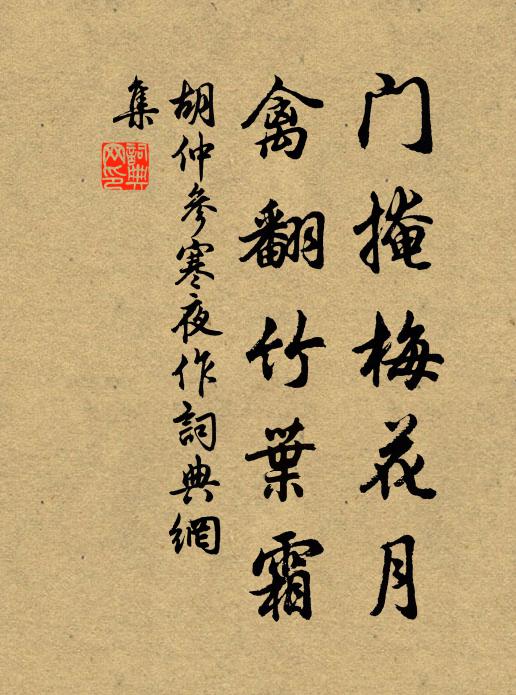 门掩梅花月
禽翻竹葉霜
胡仲參寒夜作詞典網
集
詞典
网印